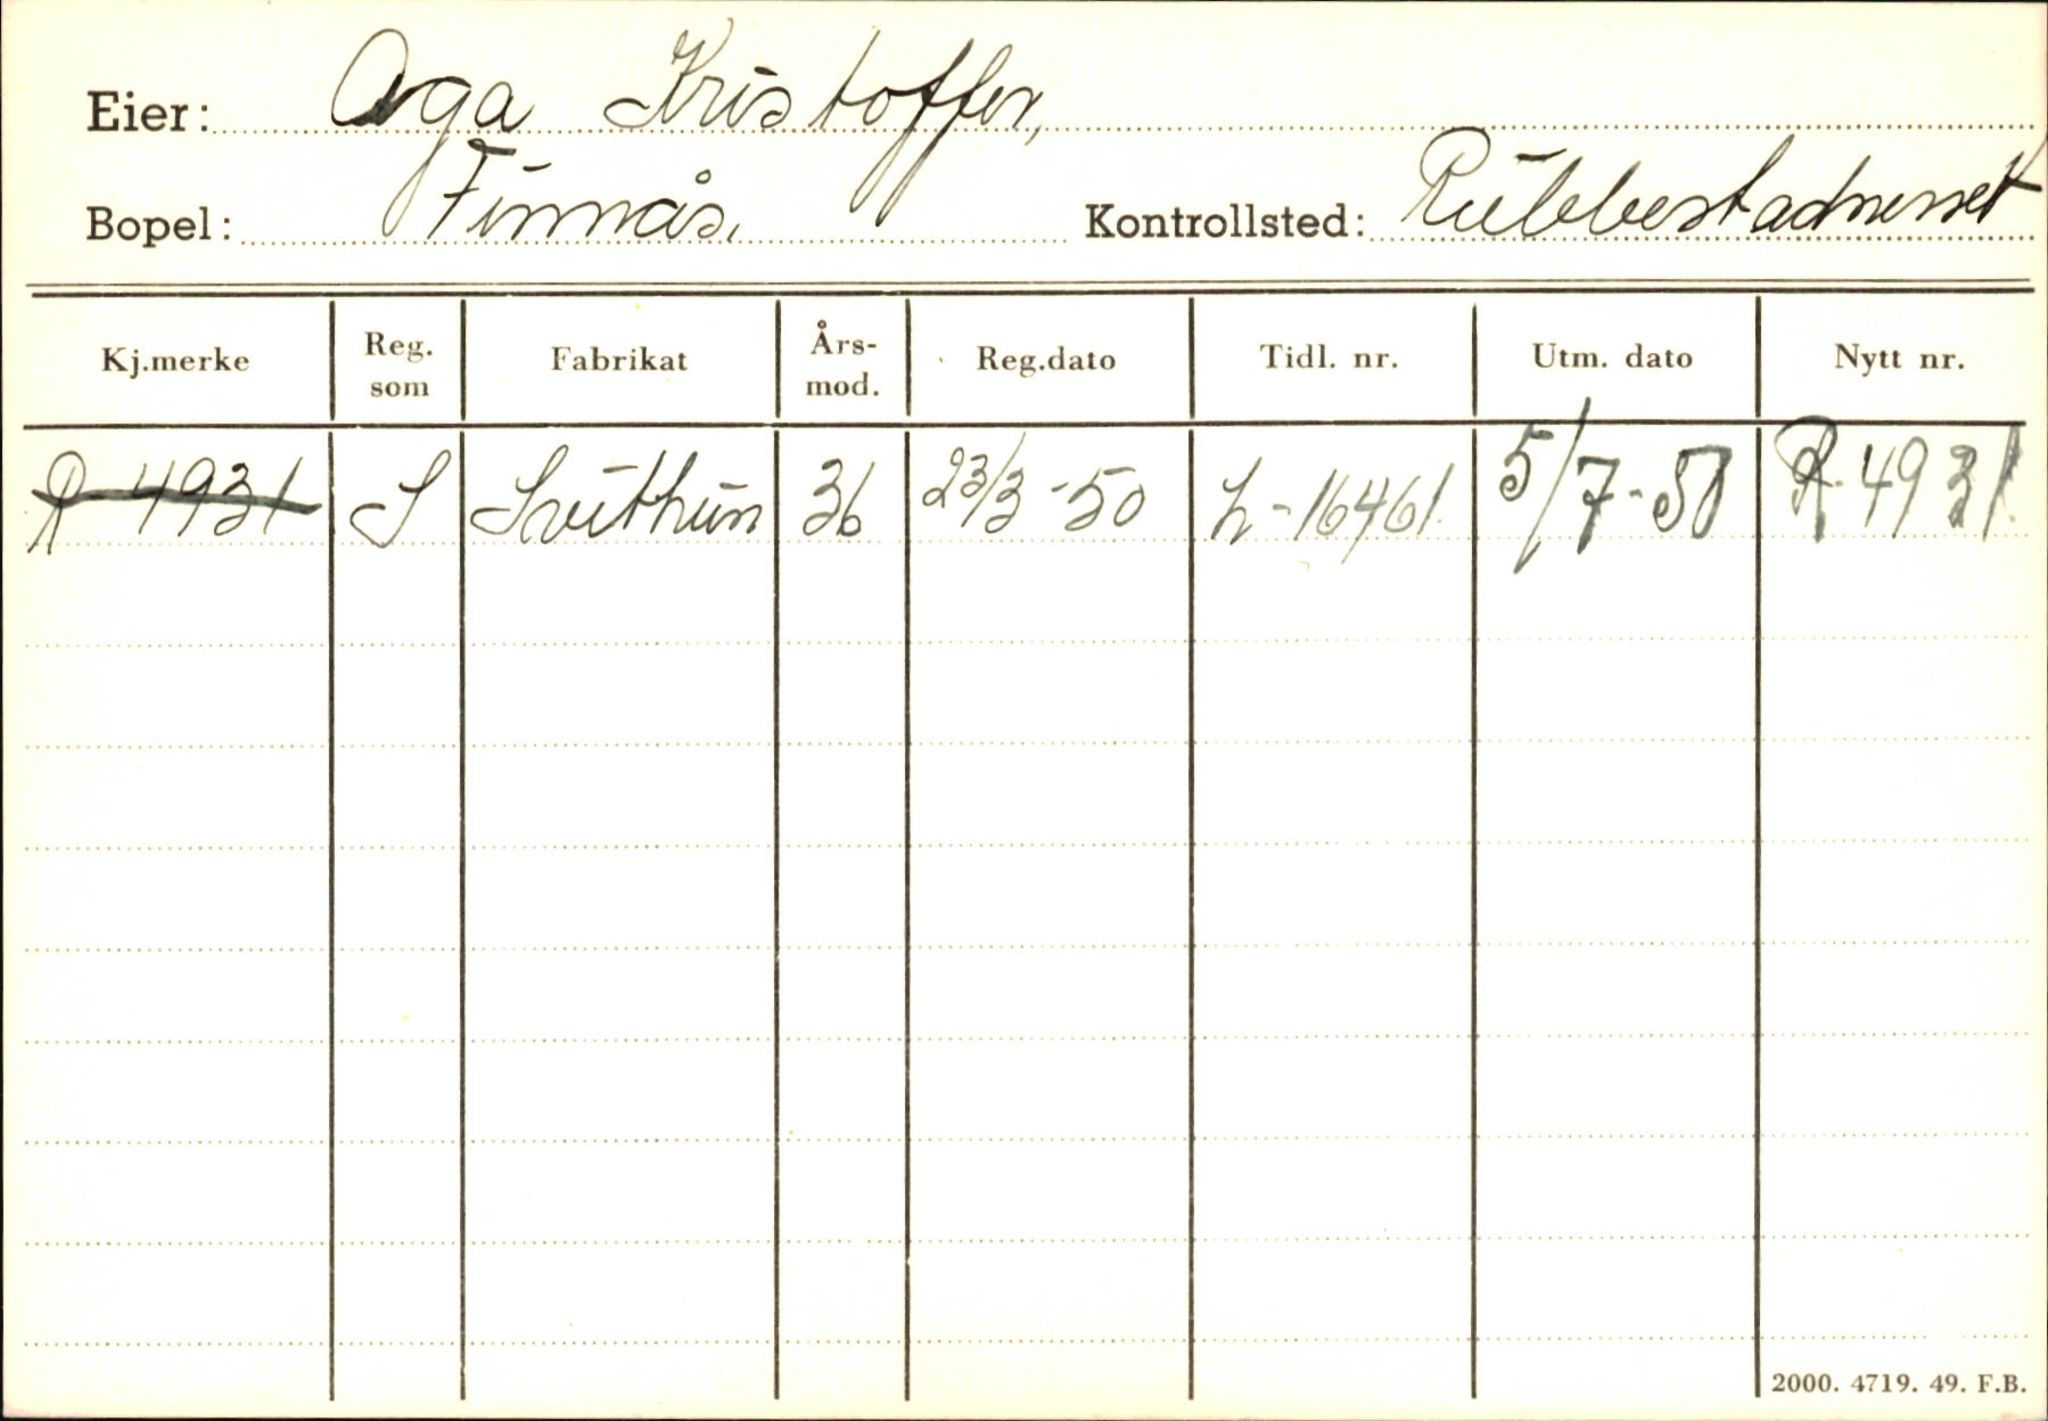 Eier: Aga Kristoffer,
Bopel: Finnås, Kontrollsted: Rubbestadneset
Kj.merke Reg. som Fabrikat Års- mod. Reg.dato Tidl. nr. Utm. dato Nytt nr.
R 4931 S Svithun 36 23/3-50 L-16461. 5/7-50 R-4931.
2000. 4719. 49. F.B.